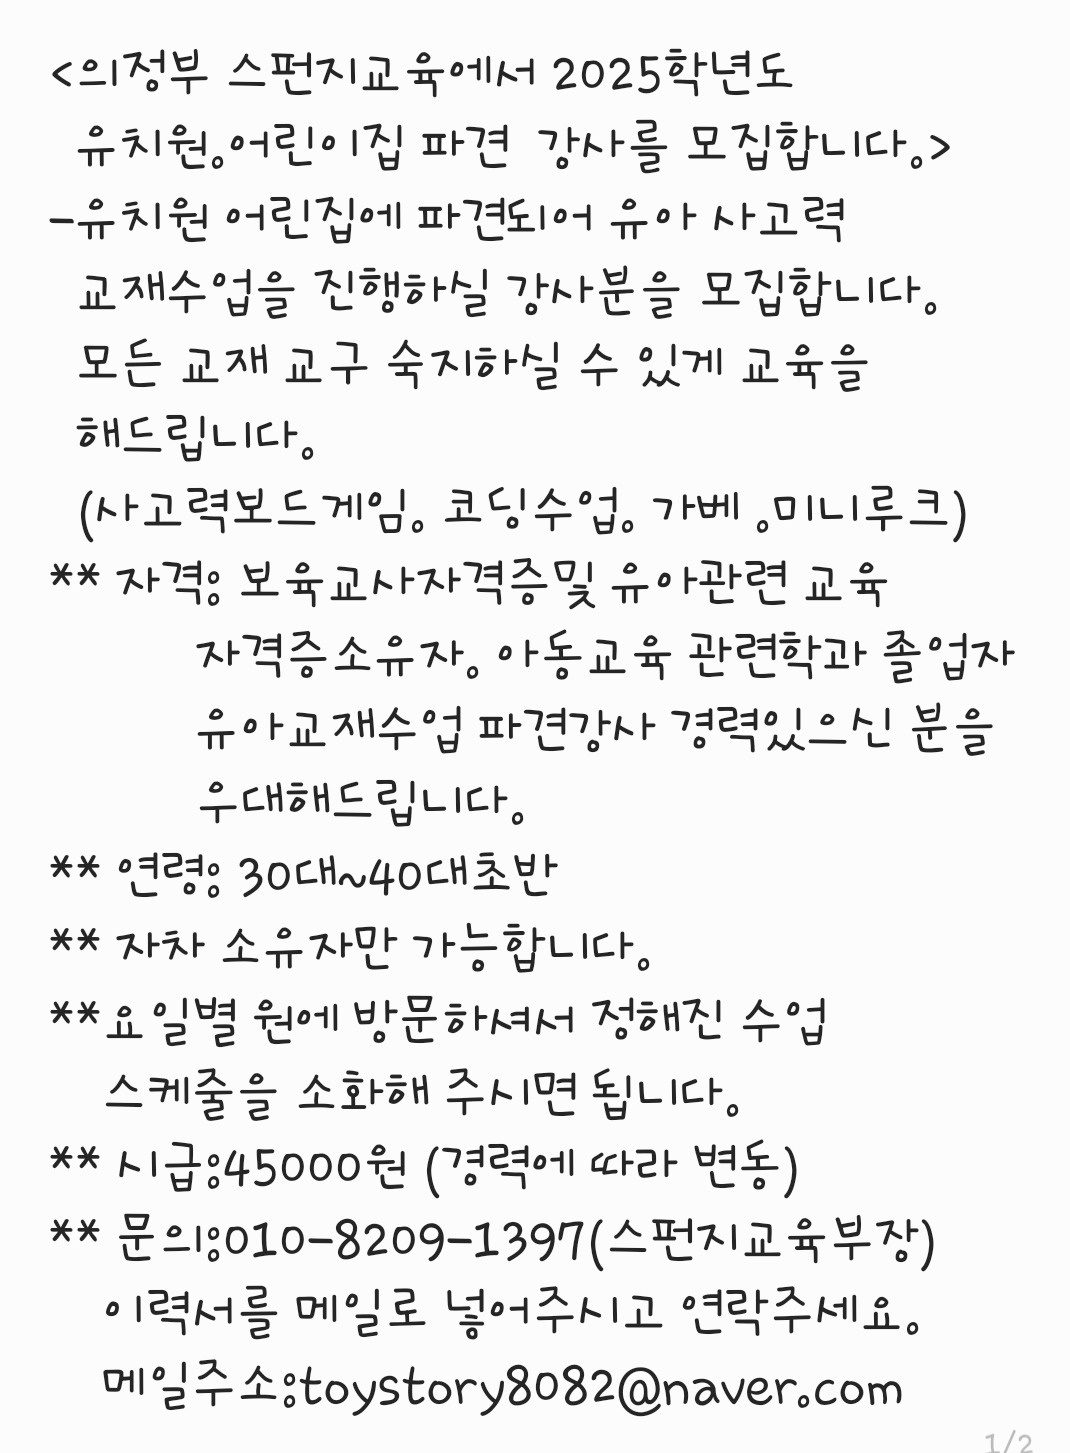 <의정부 스펀지교육에서 2025학년도
유치원.어린이집 파견 강사를 모집합니다.>
-유치원 어린집에 파견되어 유아 사고력
교재수업을 진행하실 강사분을 모집합니다.
모든 교재 교구 숙지하실 수 있게 교육을
해드립니다.
(사고력보드게임. 코딩수업. 가베 .미니루크)
** 자격: 보육교사자격증및 유아관련 교육
자격증소유자. 아동교육 관련학과 졸업자
유아교재수업 파견강사 경력있으신 분을
우대해드립니다.
** 연령: 30대~40대초반
** 자차 소유자만 가능합니다.
**요일별 원에 방문하셔서 정해진 수업
스케줄을 소화해 주시면 됩니다.
** 시급:45000원 (경력에 따라 변동)
** 문의:010-8209-1397(스펀지교육부장)
이력서를 메일로 넣어주시고 연락주세요.
메일주소:toystory8082@naver.com
1/2